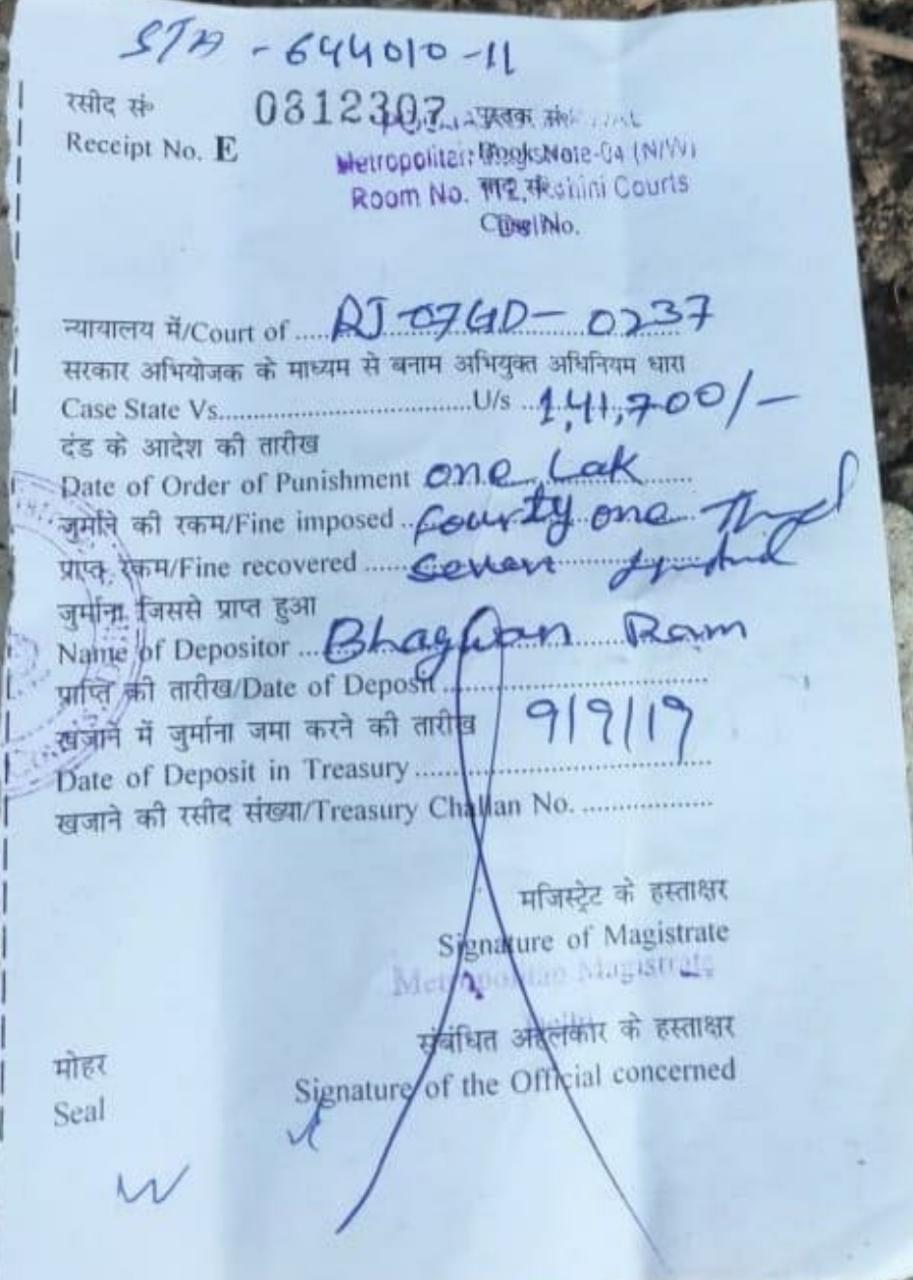 STA - 644010-11
रसीद सं॰ 0312307 पुस्तक सं॰
Receipt No. E
Metropolitan Book No. Magistrate-04 (N/W)
Room No. 112, Rohini Courts
Delhi
न्यायालय में/Court of ..... RJ 07GD - 0237
सरकार अभियोजक के माध्यम से बनाम अभियुक्त अधिनियम धारा
Case State Vs..................................U/s 1,41,700/-
दंड के आदेश की तारीख
Date of Order of Punishment one Lak
जुर्माने की रकम/Fine imposed .. Fourty one
प्राप्त रकम/Fine recovered ...... seven
जुर्माना जिससे प्राप्त हुआ
Name of Depositor ... Bhagwan Ram
प्राप्ति की तारीख/Date of Deposit ..................................
खजाने में जुर्माना जमा करने की तारीख 9/9/19
Date of Deposit in Treasury ......................................
खजाने की रसीद संख्या/Treasury Challan No. .................
मजिस्ट्रेट के हस्ताक्षर
Signature of Magistrate
Metropolitan Magistrate
संबंधित अहलकार के हस्ताक्षर
मोहर
Signature of the Official concerned
Seal